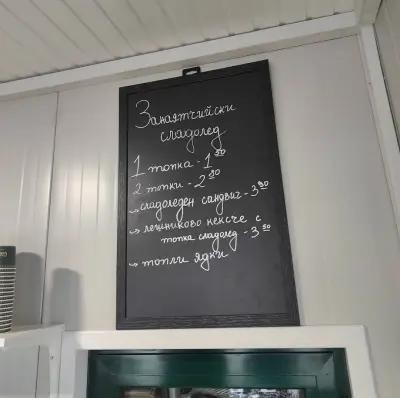 Занаятчийски
сладолед
1 топка - 1 50
2 топки - 2 80
→ сладоледен сандвич - 3 90
→ лешниково кексче с
топка сладолед - 3 50
→ топли ядки